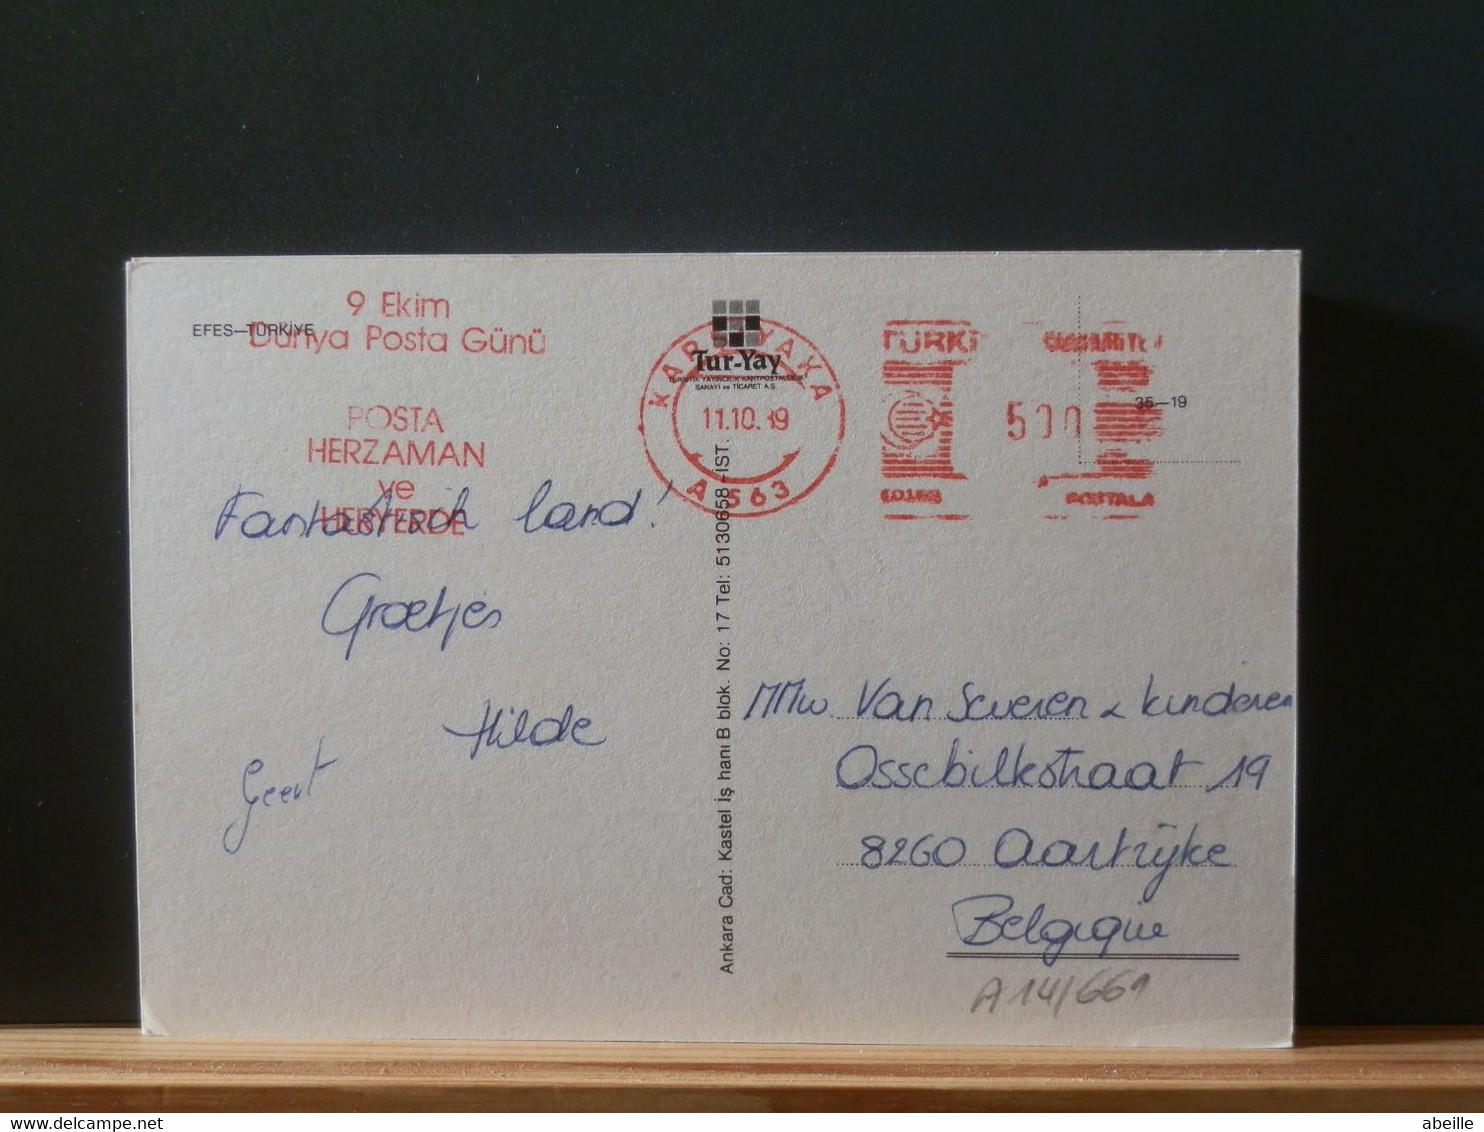 9 Ekim
EFES–TÜRKİYE
Dünya Posta Günü
POSTA
HERZAMAN
ve
HERYERDE
Fantastisch land!
Groetjes
Hilde
Geert
Tur-Yay
TURİSTİK YAYINCILIK KARTPOSTALCILIK
SANAYİ ve TİCARET A.Ş.
KARŞIYAKA
11.10.89
A 563
TÜRKİ
500
35–19
POSTALA
Ankara Cad: Kastel İş hanı B blok. No: 17 Tel: 5130658-İST.
MMw Van Severen & kinderen
Ossebilkstraat 19
8260 Aartrijke
Belgique
A14/661
abeille